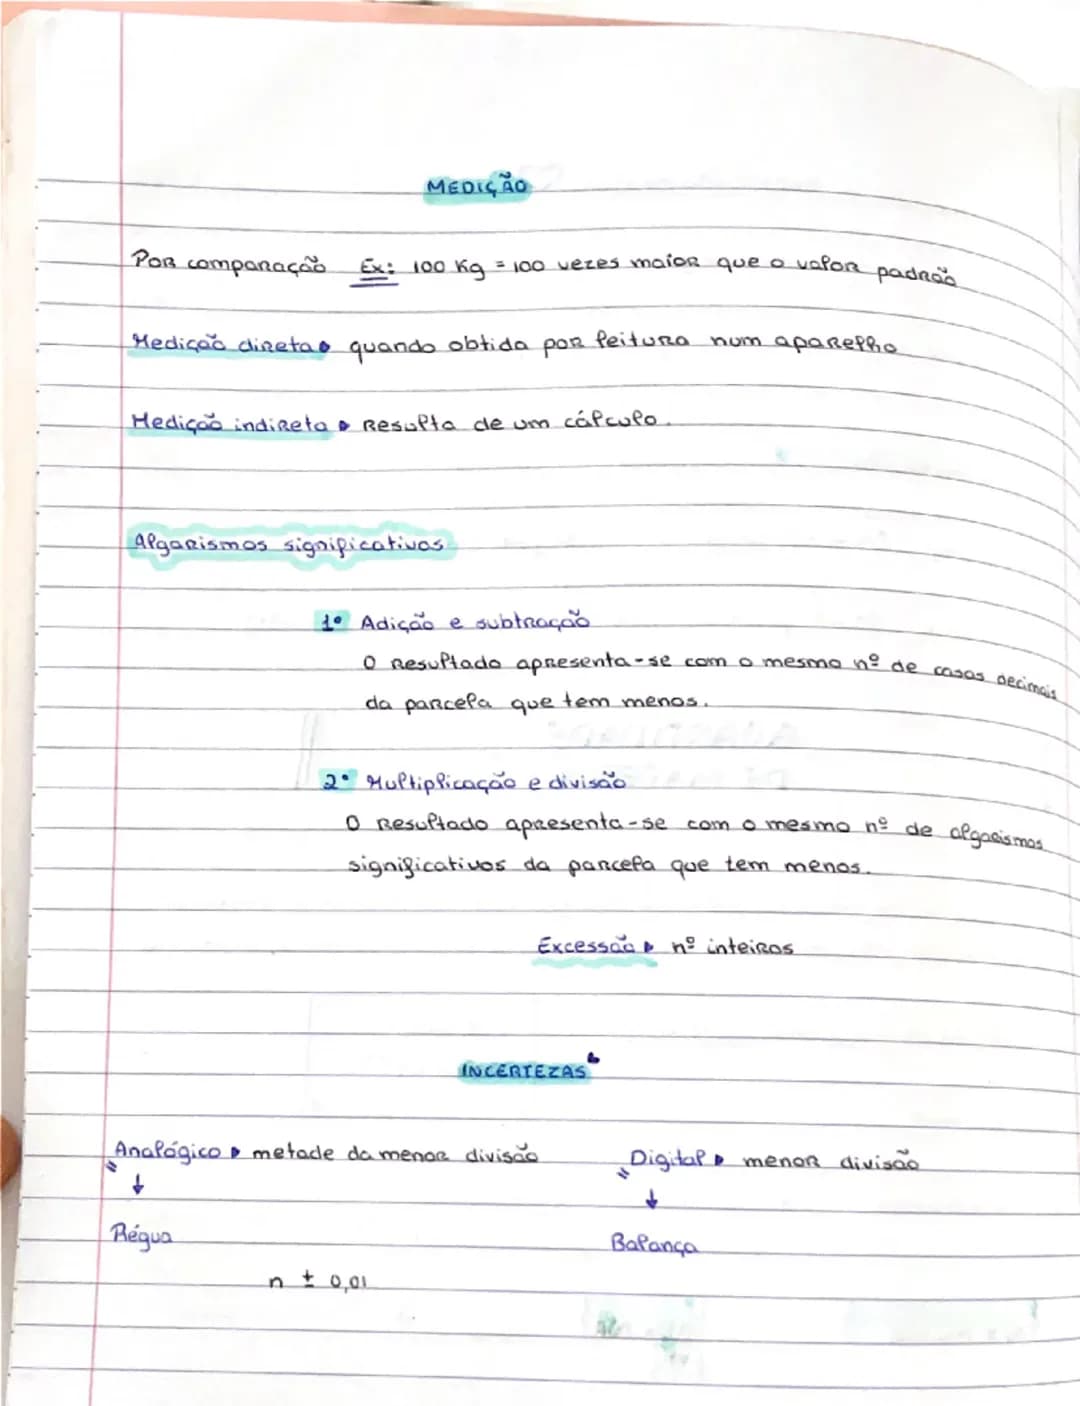 MEDIÇÃO
Por comparação Ex: 100 Kg = 100 vezes maior que o valor padrão
Medição direta quando obtida por leitura num aparelho
Medição indireta Resulta de um cálculo.
Algarismos significativos
1º Adição e subtração
O Resultado apresenta-se com o mesmo nº de casas decimais
da parcela que tem menos.
2º Multiplicação e divisão
O Resultado apresenta-se com o mesmo nº de algarismos
significativos da parcela que tem menos.
Excessão nº inteiros
INCERTEZAS
Analógico metade da menor divisão Digital menor divisão
↓ ↓
Régua Balança
n ± 0,01